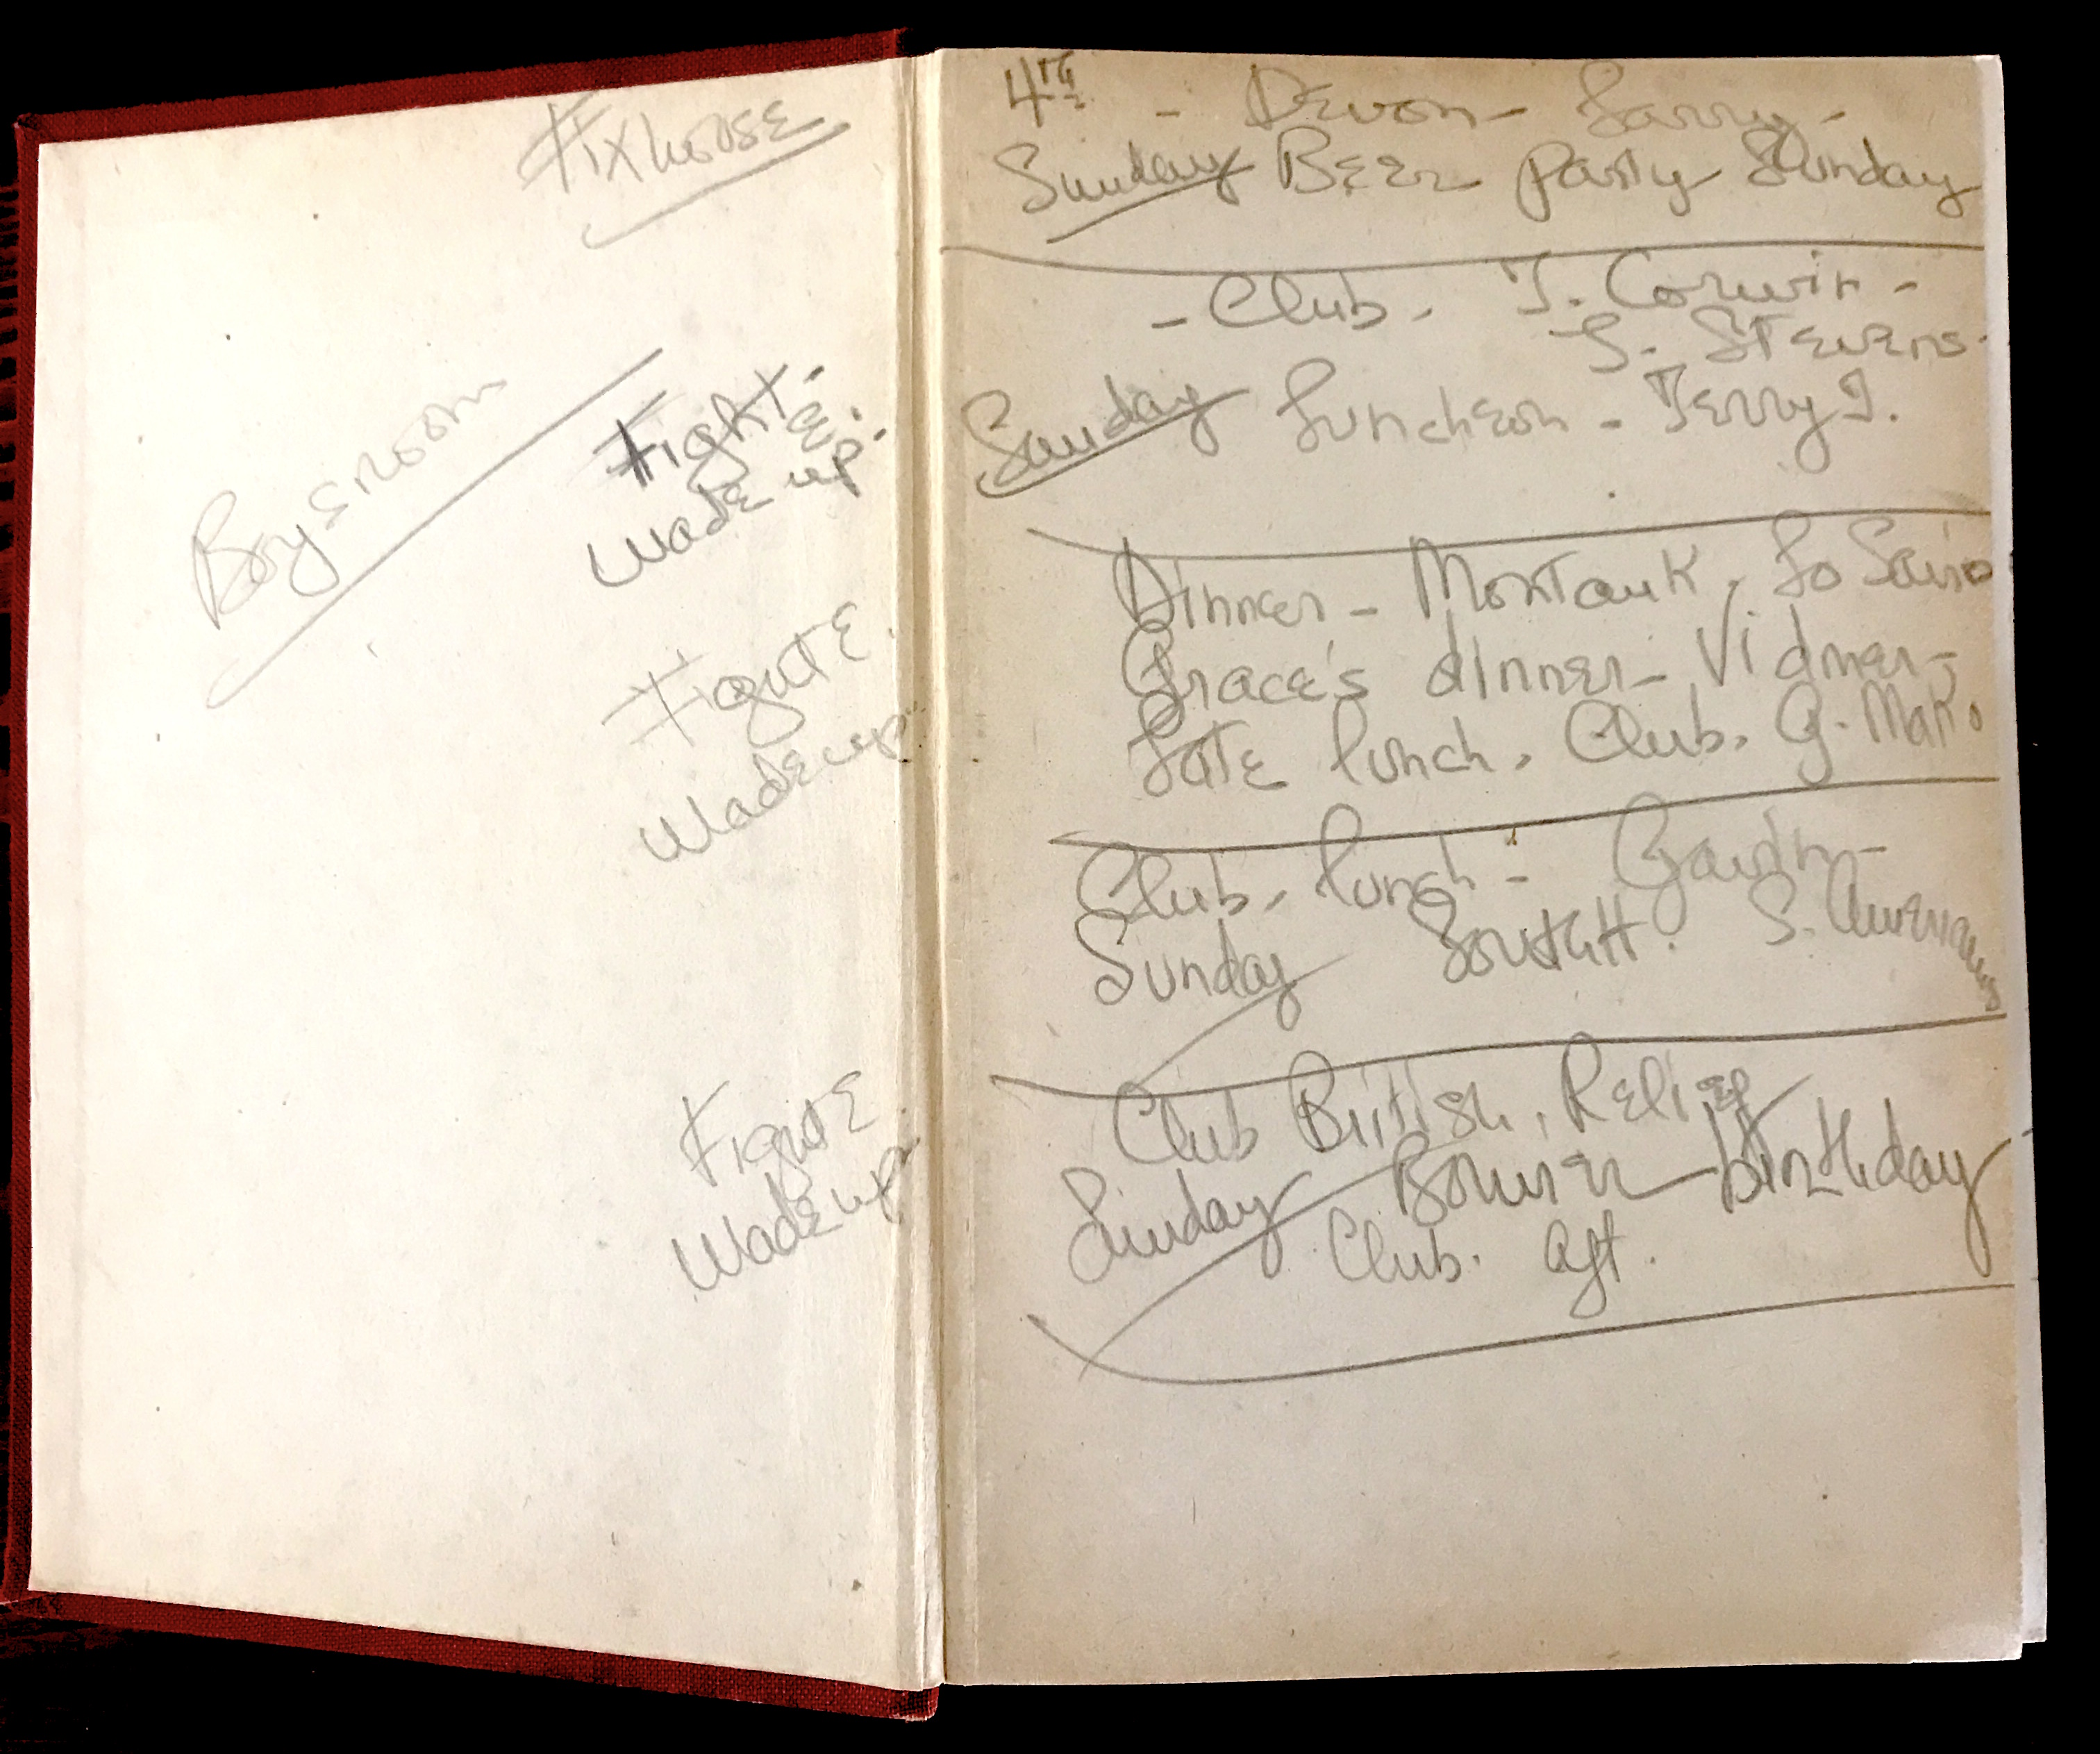 Fix house
Boys room
Fight.
Made up.
Fight E.
Made up
Fight E.
Made up
4th - Devon - Larry -
Sunday Beer party Sunday
- Club. T. Corwin -
S. Stevens.
Sunday Luncheon - Terry T.
Dinner - Montauk.
Grace's dinner - Vidmer -
Late lunch. Club. G. Mako
Club. lunch - Gavin -
Sunday South H. S. Americans
Club British. Relief
Sunday Bouvier birthday
Club. aft.